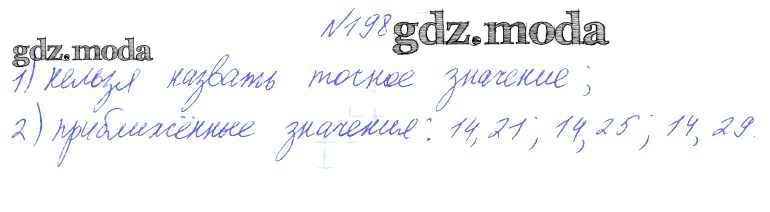 №198 gdz.moda
gdz.moda
1) нельзя назвать точное значение;
2) приближённые значения: 14,21; 14,25; 14,29.